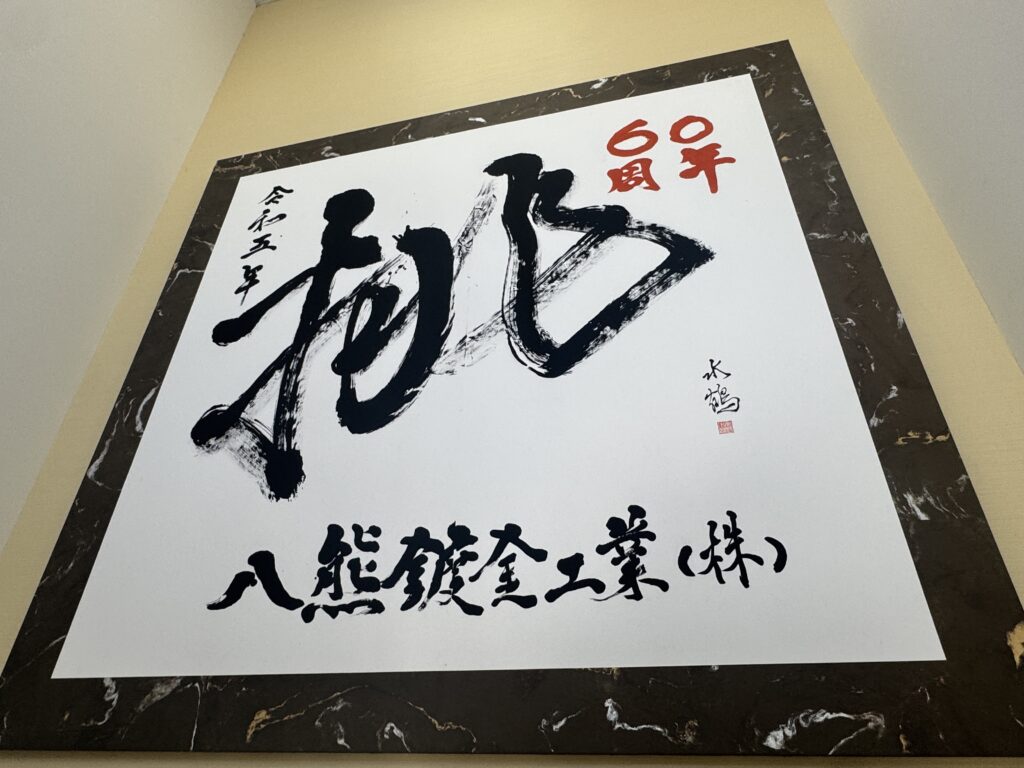 60
周年
令和五年
挑
水鶴
八熊鍍金工業(株)